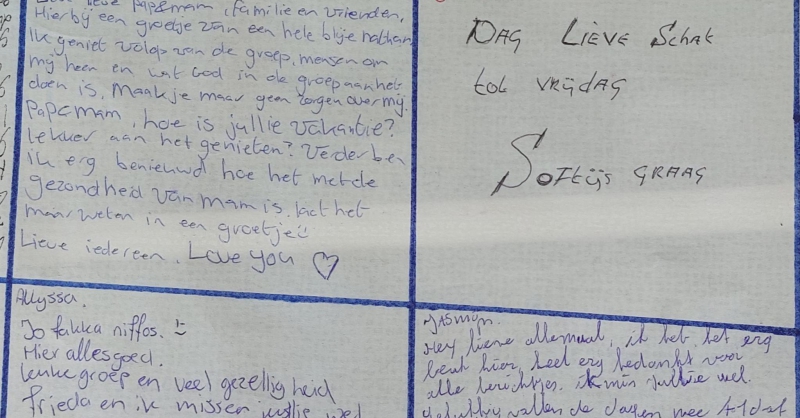 lieve pap&mam, familie en vrienden,
Hierbij een groetje van een hele blije nathan
Ik geniet volop van de groep, mensen om
mij heen en wat God in de groep aan het
doen is. Maak je maar geen zorgen over mij.
Pap&mam, hoe is jullie vakantie?
Lekker aan het genieten? Verder ben
ik erg benieuwd hoe het met de
gezondheid van mam is, laat het
maar weten in een groetje
Lieve iedereen. Love you ♡
DAG LIEVE SCHAT
tot VRIJDAG
SOFTIJS GRAAG
Allyssa.
Jo fakka niffos.
Hier alles goed.
Leuke groep en veel gezelligheid
Frieda en ik missen jullie wel
Jasmijn.
Hey lieve allemaal, ik heb het erg
leuk hier, heel erg bedankt voor
alle berichtjes. ik mis jullie wel.
vallen de dagen mee